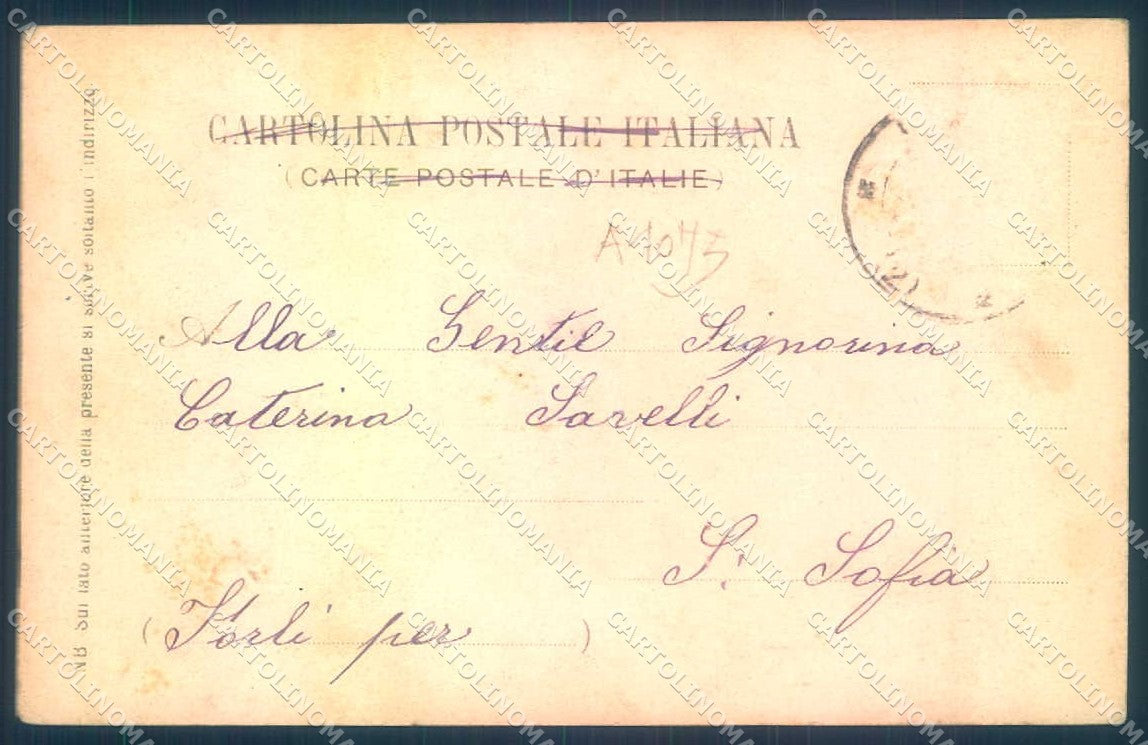 CARTOLINA POSTALE ITALIANA
(CARTE POSTALE D'ITALIE)
Alla Gentil Signorina
Caterina Savelli
S. Sofia
(Forlì per )
NB Sul lato anteriore della presente si scrive soltanto l'indirizzo.
CARTOLINOMANIA